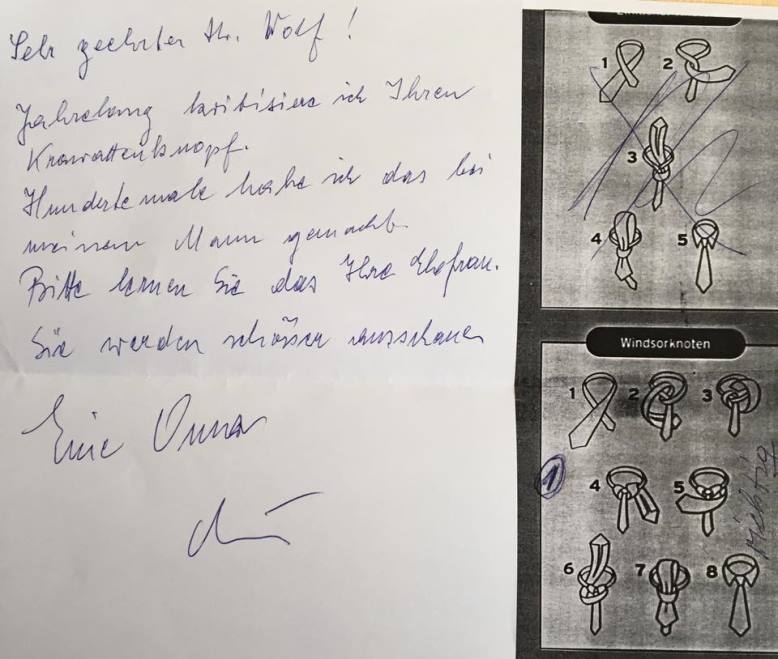 Sehr geehrter Hr. Wolf!
Jahrelang kritisiere ich Ihren
Krawattenknopf.
Hunderte male habe ich das bei
meinem Mann gemacht.
Bitte lernen Sie das Ihre Ehefrau.
Sie werden schöner ausschauen
Eine Oma
1 2
3
4 5
Windsorknoten
1 2 3
1
4 5
Richtig
6 7 8